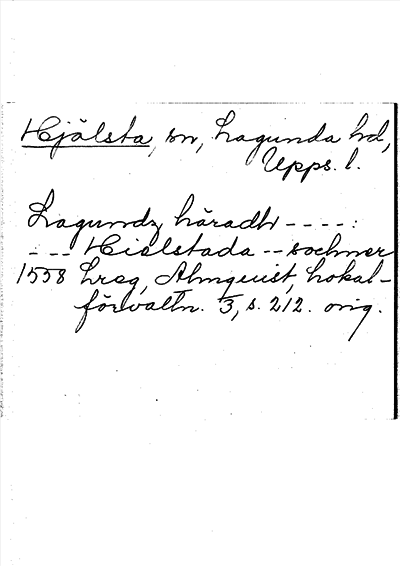 Hjälsta, sn, Lagunda hd,
Upps. l.
Lagundz häradh ----:
--- Hielstada -- sochner
1558 Lreg, Almquist, Lokal-
förvaltn. I 3, s. 212. orig.